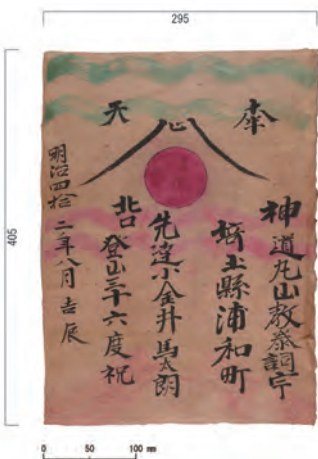 295
405
奉心天
神道丸山教祭詞宇
埼玉縣浦和町
先達小金井馬太朗
北口登山三十六度祝
明治四拾二年八月吉辰
0 50 100 mm